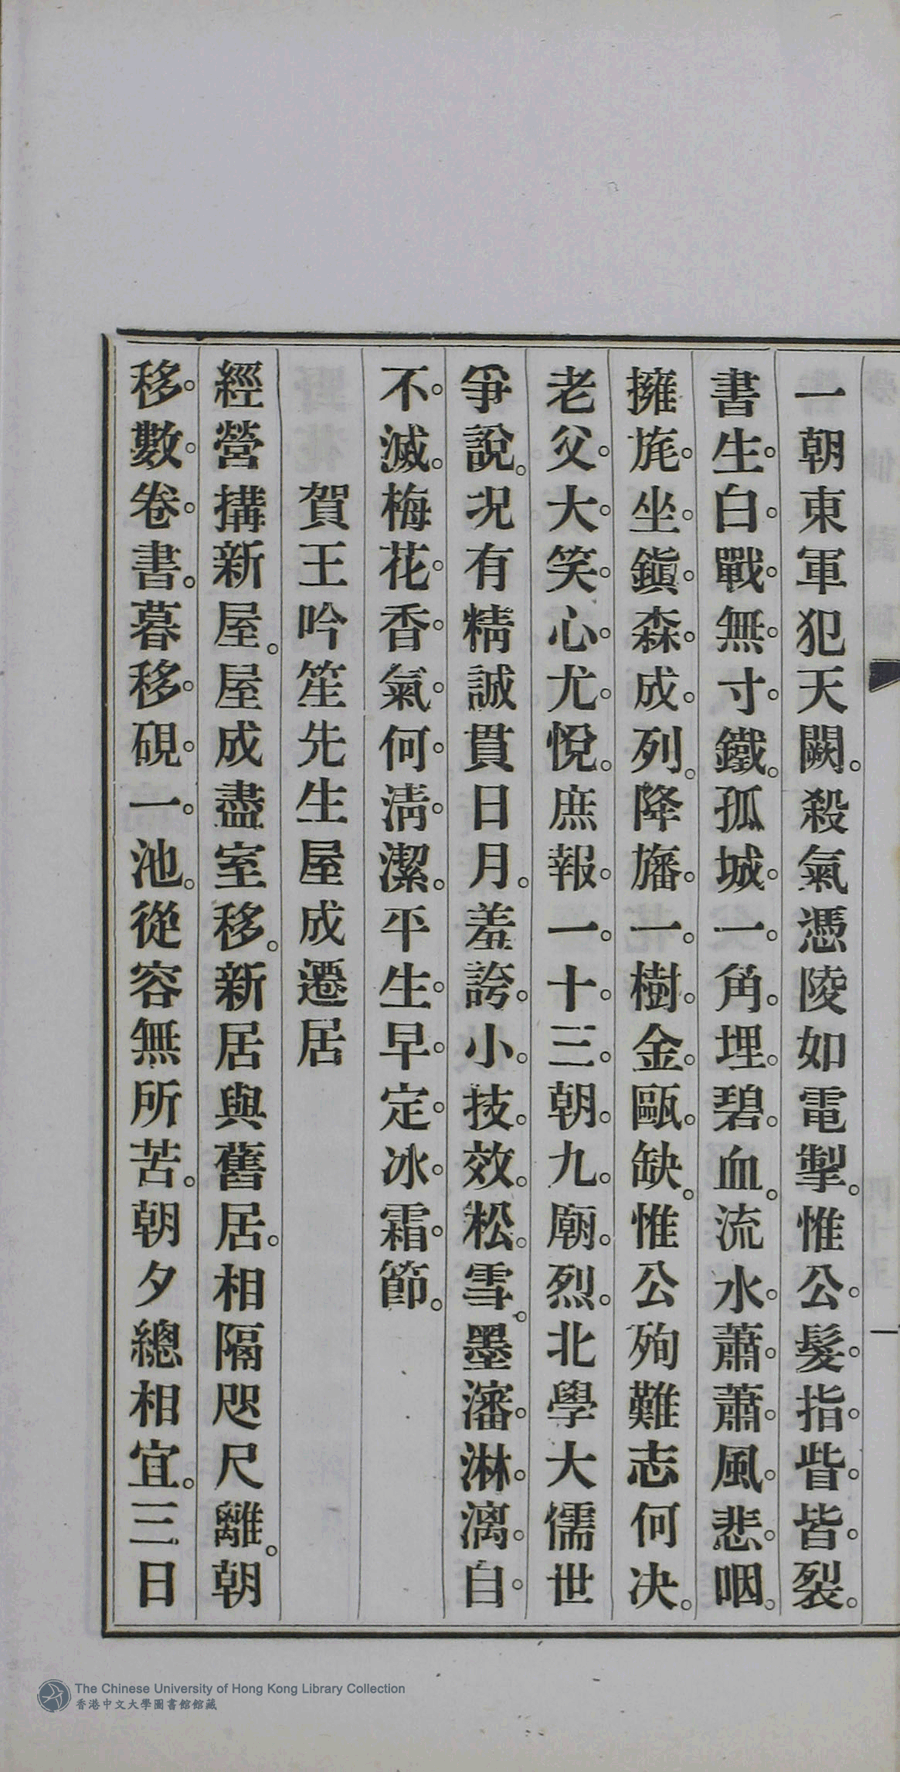 一朝東軍犯天闕。殺氣憑陵如電掣。惟公髮指眥皆裂。
書生白戰無寸鐵。孤城一角埋碧血。流水蕭蕭風悲咽。
擁旄坐鎭森成列。降旛一樹金甌缺。惟公殉難志何决。
老父大笑心尤悅。庶報一十三朝九廟烈。北學大儒世
爭說。况有精誠貫日月。羞誇小技效松雪。墨瀋淋漓自
不滅。梅花香氣何淸潔。平生早定冰霜節。
賀王吟笙先生屋成遷居
經營搆新屋。屋成盡室移。新居與舊居。相隔咫尺離。朝
移數卷書。暮移硯一池。從容無所苦。朝夕總相宜。三日
The Chinese University of Hong Kong Library Collection
香港中文大學圖書館館藏